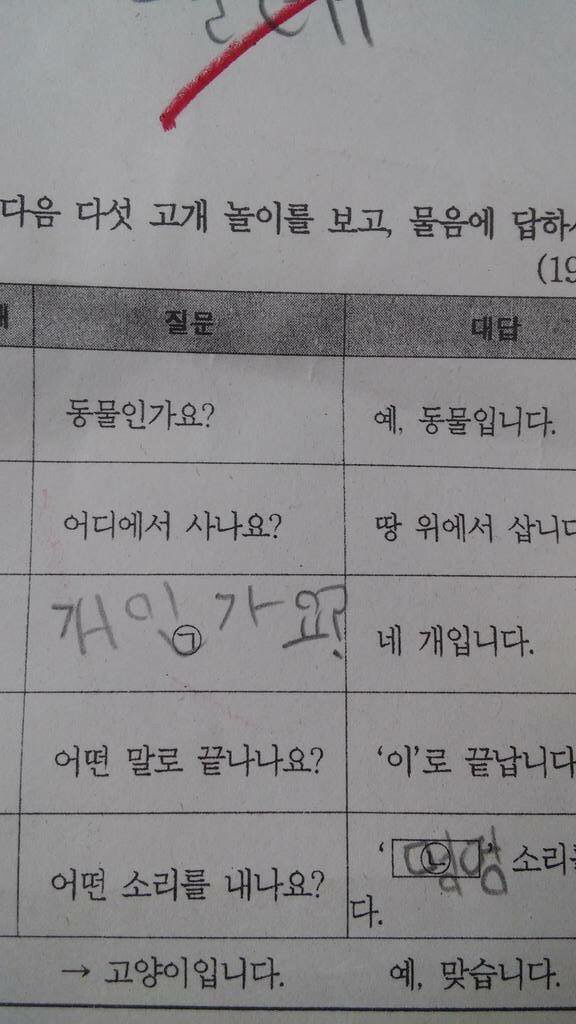 다음 다섯 고개 놀이를 보고, 물음에 답하
(19
질문 대답
동물인가요? 예, 동물입니다.
어디에서 사나요? 땅 위에서 삽니다
개인가요? ㉠ 네 개입니다.
어떤 말로 끝나나요? ‘이’로 끝납니다
어떤 소리를 내나요? ‘㉡ 멍멍’ 소리를
다.
→ 고양이입니다. 예, 맞습니다.